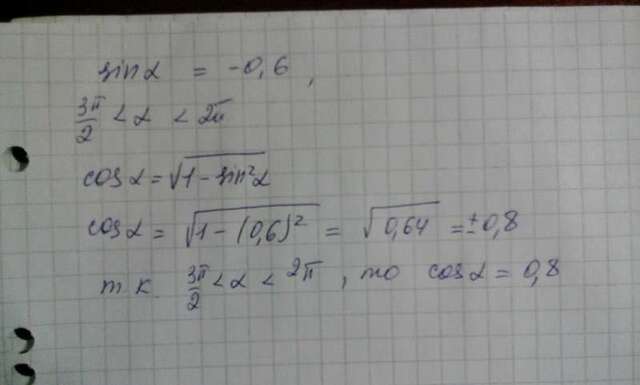 sin α = -0,6 ,
3π/2 < α < 2π
cos α = √(1 - sin²α)
cos α = √(1 - (0,6)²) = √0,64 = ±0,8
т к. 3π/2 < α < 2π , то cos α = 0,8